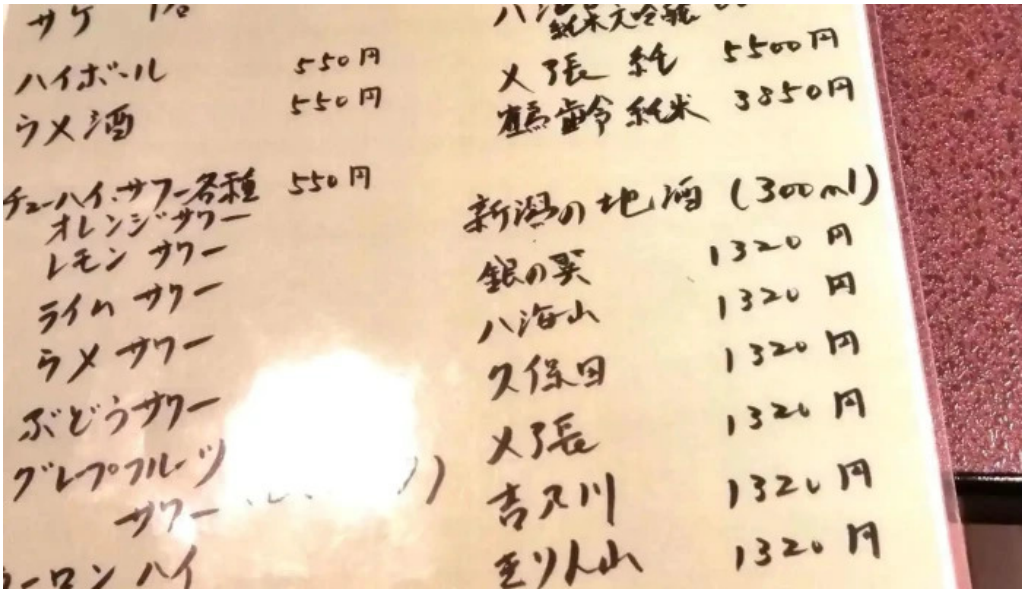 ハイボール 550円
ウメ酒 550円
チューハイ.サワー各種 550円
オレンジサワー
レモン サワー
ライム サワー
ウメ サワー
ぶどうサワー
グレープフルーツ
サワー
ーロン ハイ
純米大吟醸
〆張 純 5500円
鶴齢 純米 3850円
新潟の地酒 (300ml)
銀の翼 1320円
八海山 1320円
久保田 1320円
〆張 1320円
吉乃川 1320円
きりん山 1320円